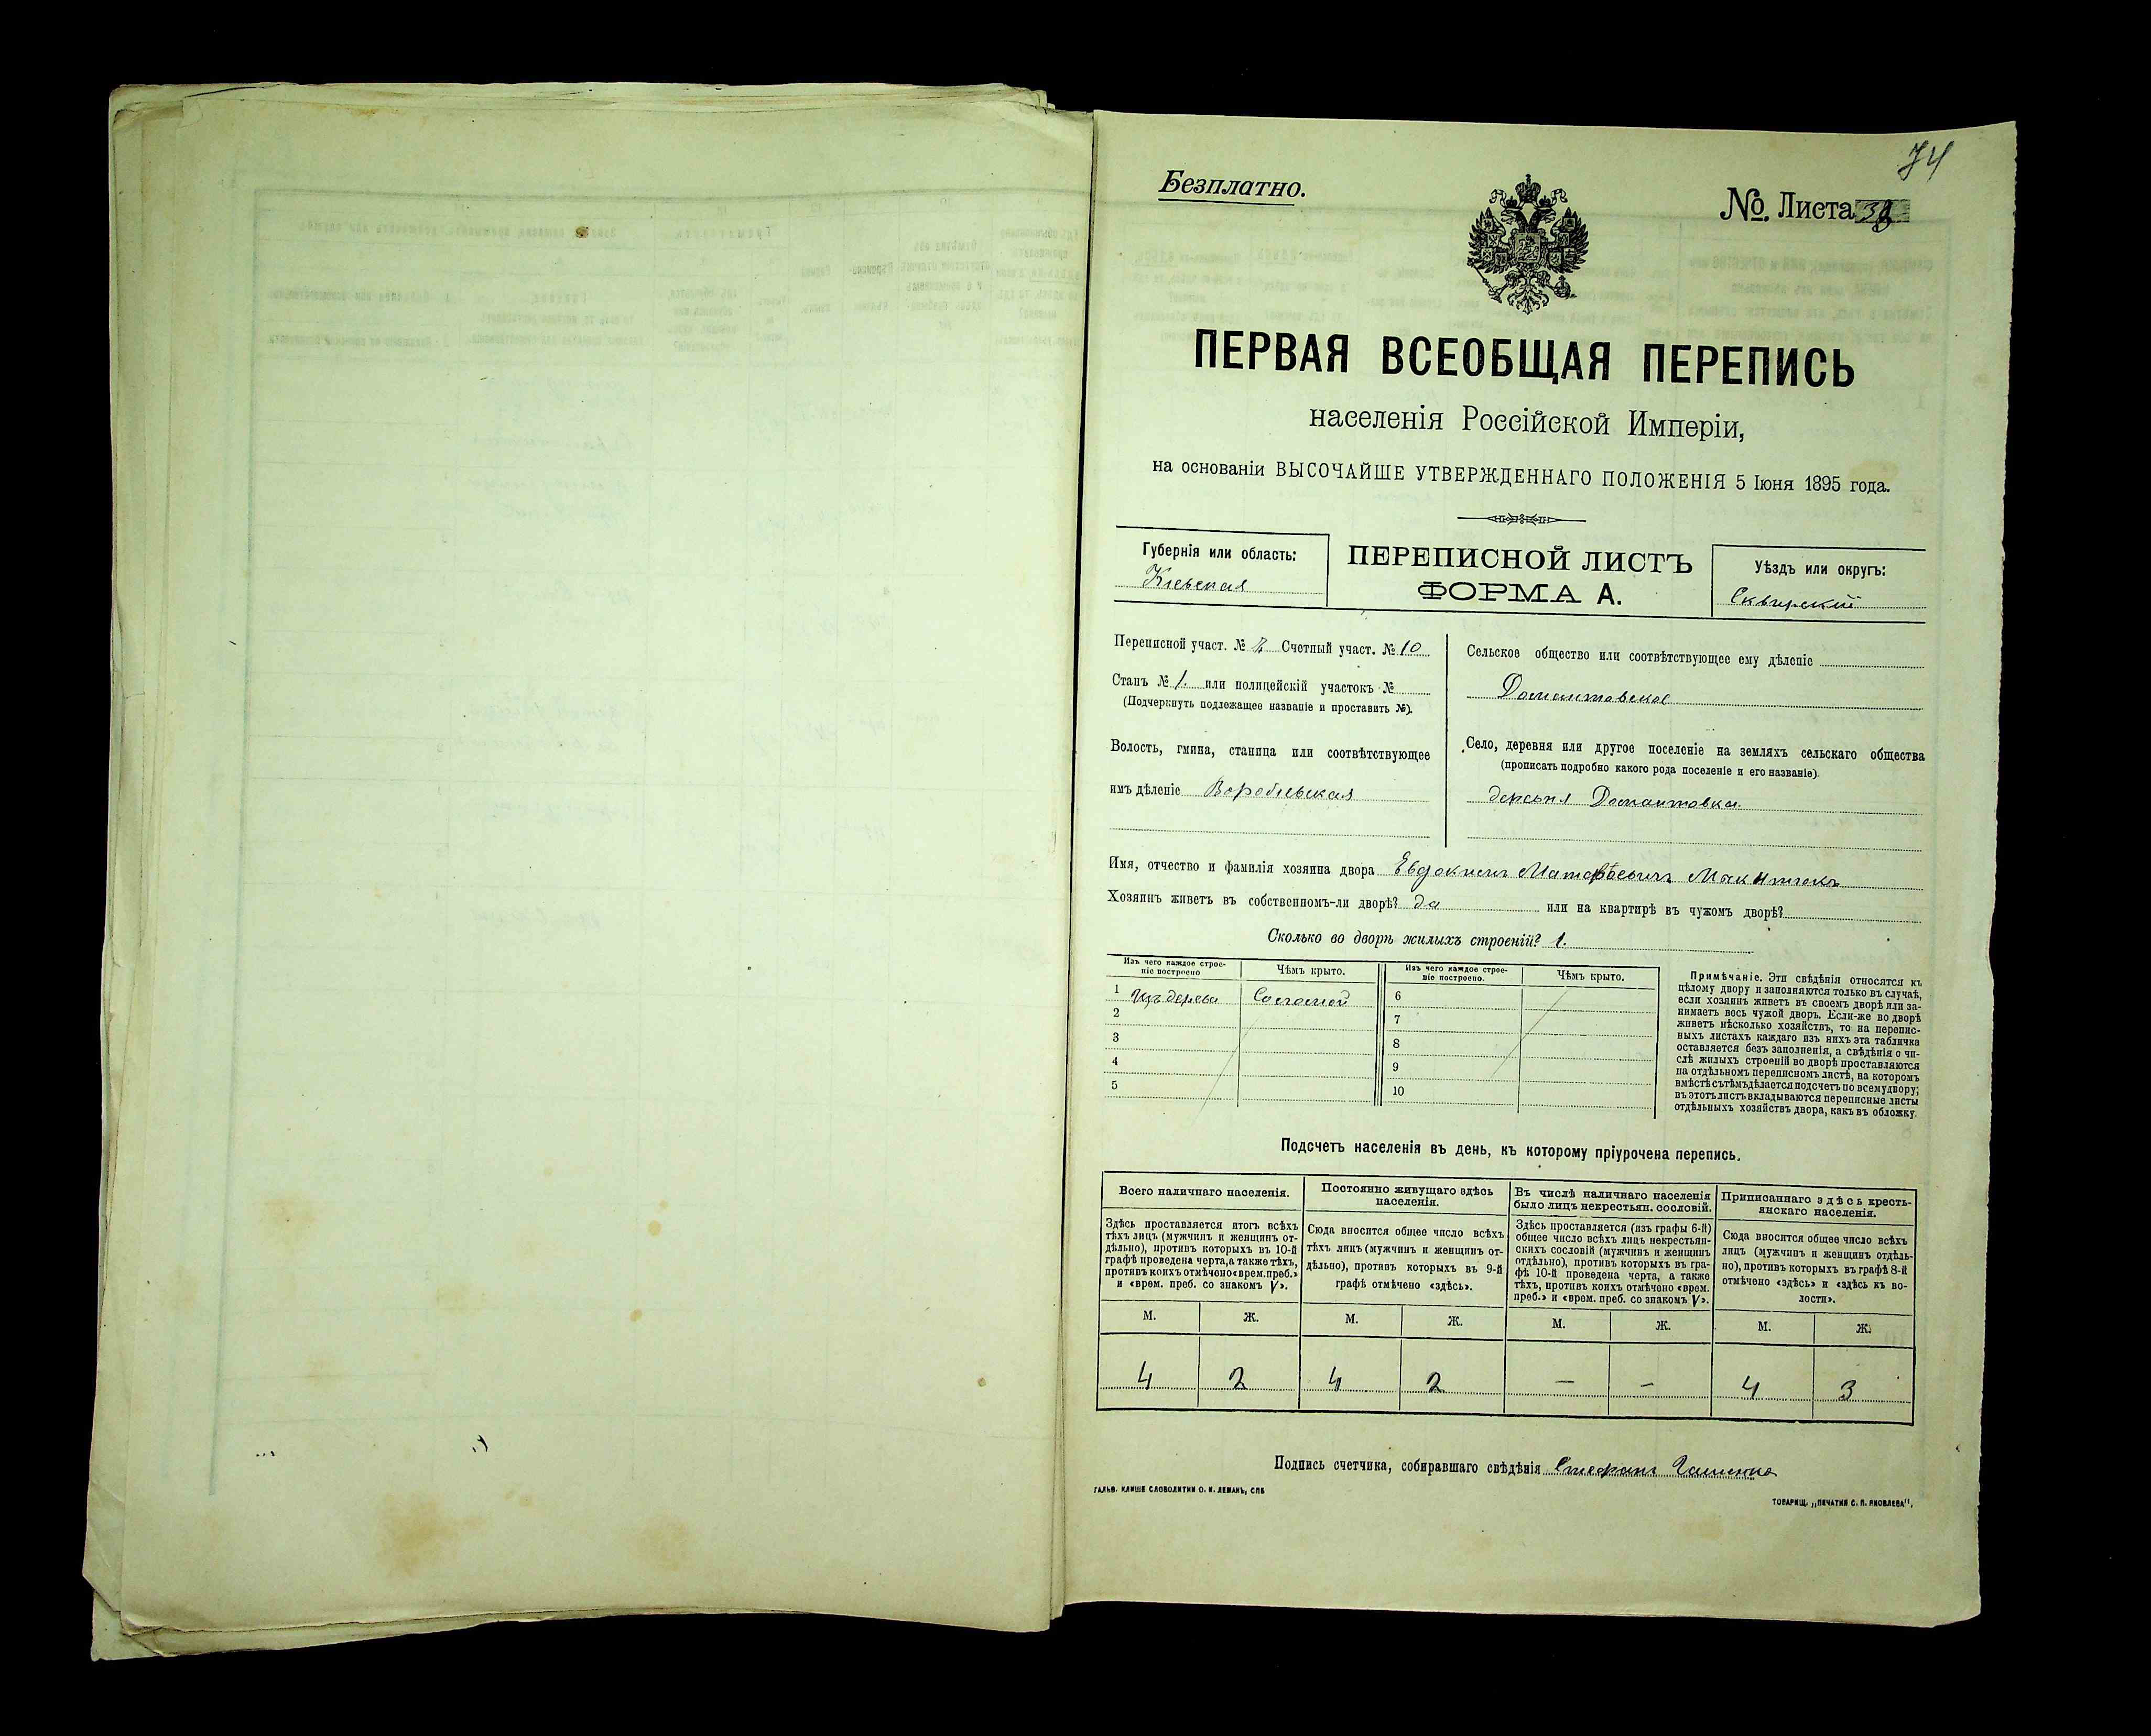 74
Безплатно.
№. Листа 38
ПЕРВАЯ ВСЕОБЩАЯ ПЕРЕПИСЬ
населенія Россійской Имперіи,
на основаніи ВЫСОЧАЙШЕ УТВЕРЖДЕННАГО ПОЛОЖЕНІЯ 5 Іюня 1895 года.
Губернія или область:
Кіевская
ПЕРЕПИСНОЙ ЛИСТЪ
ФОРМА А.
Уѣздъ или округъ:
Сквирскій
Переписной участ. № 2 Счетный участ. № 10
Станъ № 1. или полицейскій участокъ №
(Подчеркнуть подлежащее названіе и проставить №).
Волость, гмина, станица или соотвѣтствующее
имъ дѣленіе Воробіевская
Сельское общество или соотвѣтствующее ему дѣленіе
Домантовское
Село, деревня или другое поселеніе на земляхъ сельскаго общества
(прописать подробно какого рода поселеніе и его названіе).
деревня Домантовка.
Имя, отчество и фамилія хозяина двора Евдокимъ Матвѣевичъ
Хозяинъ живетъ въ собственномъ-ли дворѣ? да или на квартирѣ въ чужомъ дворѣ?
Сколько во дворѣ жилыхъ строеній? 1.
Изъ чего каждое строе-
ніе построено
Чѣмъ крыто.
Изъ чего каждое строе-
ніе построено.
Чѣмъ крыто.
1 Изъ дерева Соломой
2
3
4
5
6
7
8
9
10
Примѣчаніе. Эти свѣдѣнія относятся къ
цѣлому двору и заполняются только въ случаѣ,
если хозяинъ живетъ въ своемъ дворѣ или за-
нимаетъ весь чужой дворъ. Если-же во дворѣ
живетъ нѣсколько хозяйствъ, то на перепис-
ныхъ листахъ каждаго изъ нихъ эта табличка
оставляется безъ заполненія, а свѣдѣнія о чи-
слѣ жилыхъ строеній во дворѣ проставляются
на отдѣльномъ переписномъ листѣ, на которомъ
вмѣстѣ съ тѣмъ дѣлается подсчетъ по всему двору;
въ этотъ листъ вкладываются переписные листы
отдѣльныхъ хозяйствъ двора, какъ въ обложку.
Подсчетъ населенія въ день, къ которому пріурочена перепись.
Всего наличнаго населенія.
Здѣсь проставляется итогъ всѣхъ
тѣхъ лицъ (мужчинъ и женщинъ от-
дѣльно), противъ которыхъ въ 10-й
графѣ проведена черта, а также тѣхъ,
противъ коихъ отмѣчено «врем. преб.»
и «врем. преб. со знакомъ V».
Постоянно живущаго здѣсь
населенія.
Сюда вносится общее число всѣхъ
тѣхъ лицъ (мужчинъ и женщинъ от-
дѣльно), противъ которыхъ въ 9-й
графѣ отмѣчено «здѣсь».
Въ числѣ наличнаго населенія
было лицъ некрестьян. сословій.
Здѣсь проставляется (изъ графы 6-й)
общее число всѣхъ лицъ некрестьян-
скихъ сословій (мужчинъ и женщинъ
отдѣльно), противъ которыхъ въ гра-
фѣ 10-й проведена черта, а также
тѣхъ, противъ коихъ отмѣчено «врем.
преб.» и «врем. преб. со знакомъ V».
Приписаннаго здѣсь кресть-
янскаго населенія.
Сюда вносится общее число всѣхъ
лицъ (мужчинъ и женщинъ отдѣль-
но), противъ которыхъ въ графѣ 8-й
отмѣчено «здѣсь» и «здѣсь къ во-
лости».
М. Ж. М. Ж. М. Ж. М. Ж.
4 2 4 2 — — 4 3
Подпись счетчика, собиравшаго свѣдѣнія Стефанъ
ГАЛЬВ. КЛИШЕ СЛОВОЛИТНИ О. И. ЛЕМАНЪ, СПБ
ТОВАРИЩ. „ПЕЧАТНИ С. П. ЯКОВЛЕВА".